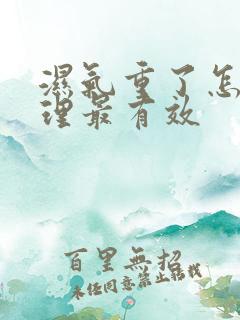 濕氣重了怎
理最有效
百里無招
未经同意禁止转载